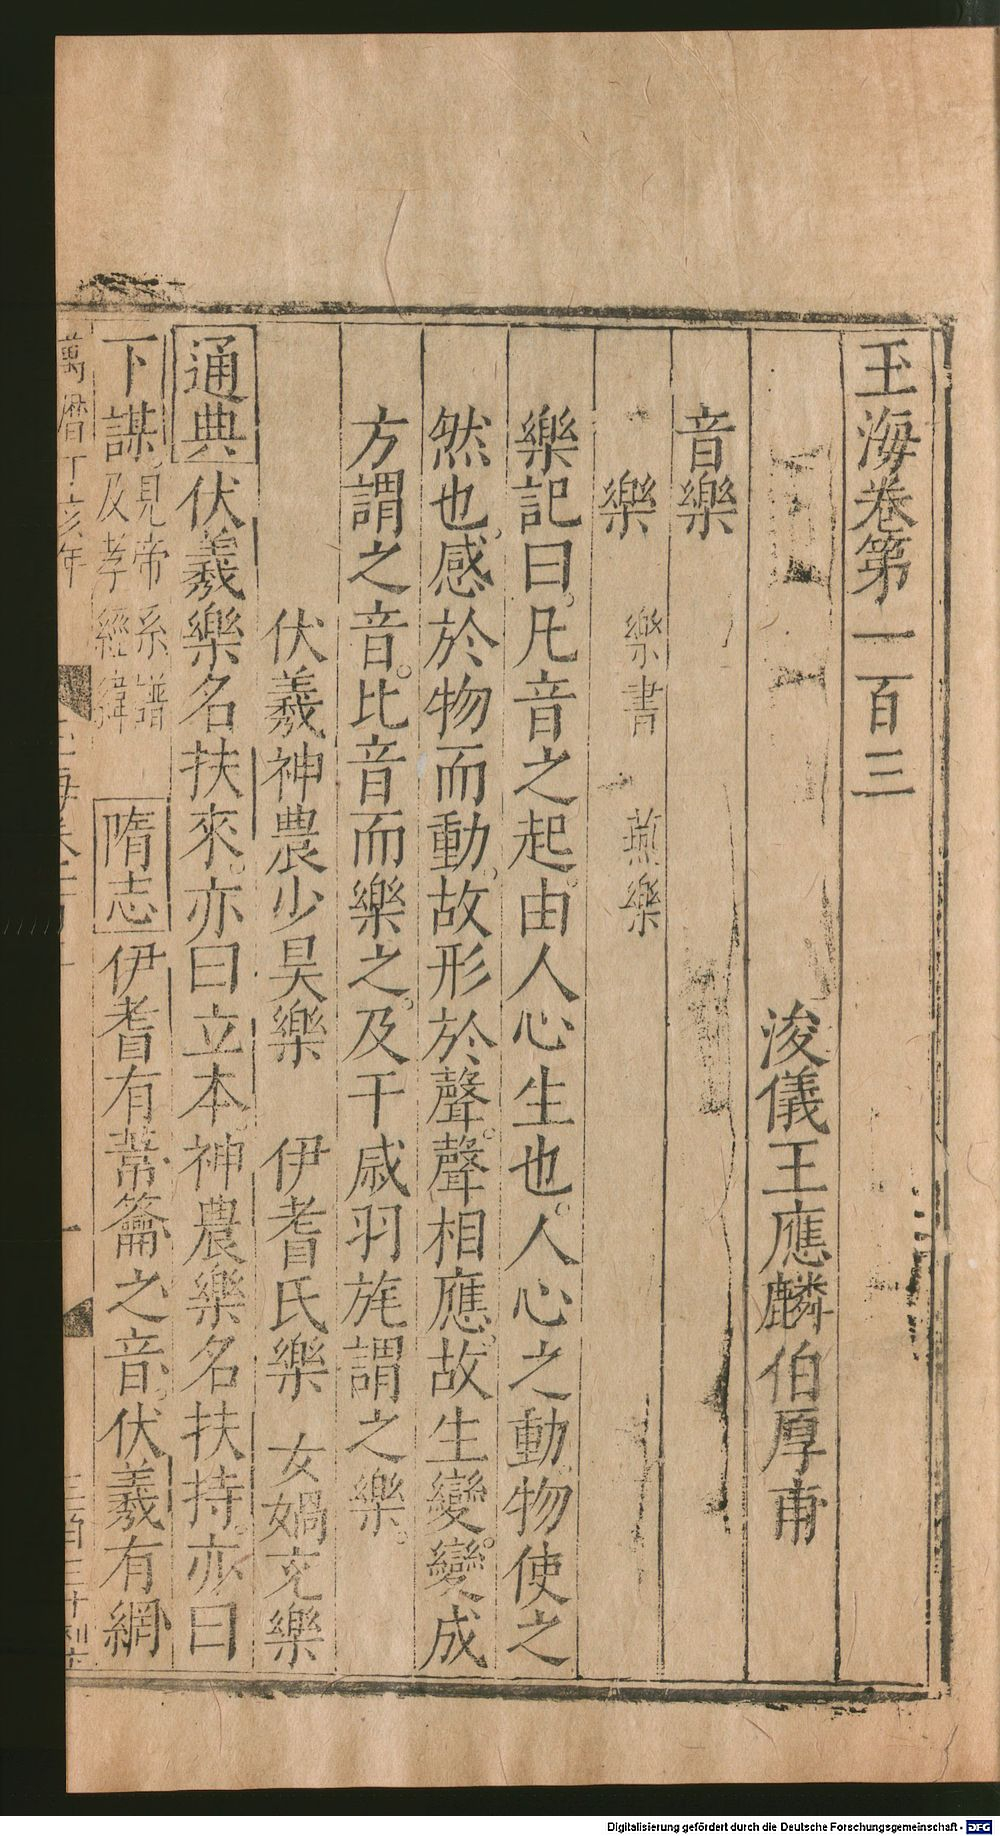 玉海卷第一百三
浚儀王應麟伯厚甫
音樂
樂 樂書 燕樂
樂記曰。凡音之起。由人心生也。人心之動。物使之
然也。感於物而動。故形於聲。聲相應。故生變。變成
方謂之音。比音而樂之。及干戚羽旄謂之樂。
伏羲神農少昊樂 伊耆氏樂 女媧充樂
通典伏羲樂名扶來。亦曰立本。神農樂名扶持。亦曰
下謀。見帝系譜及孝經緯 隋志伊耆有葦籥之音。伏羲有網
萬曆丁亥年
Digitalisierung gefördert durch die Deutsche Forschungsgemeinschaft - DFG